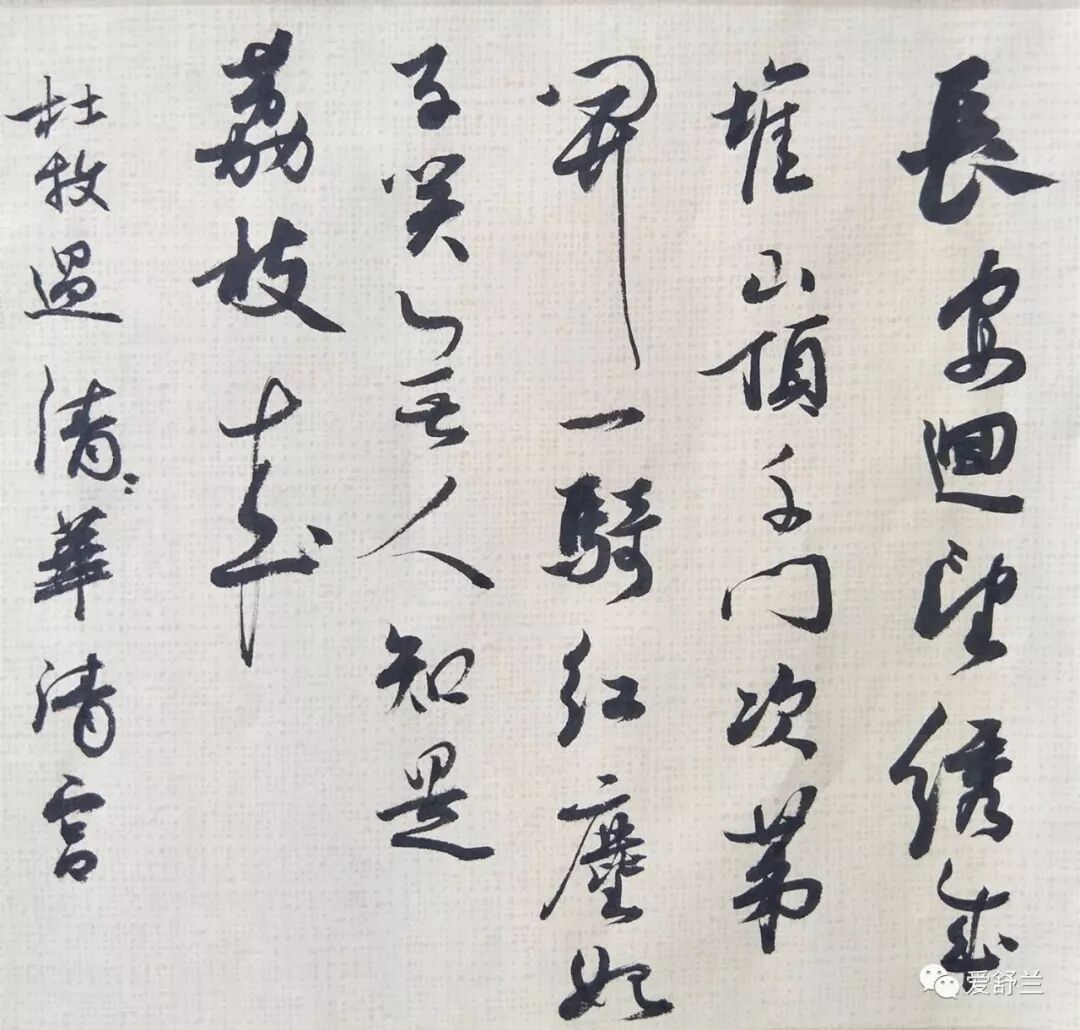 長安迴望绣成
堆山頂千门次第
開一騎红塵妃
子笑無人知是
荔枝来
杜牧過清華清宫
爱舒兰